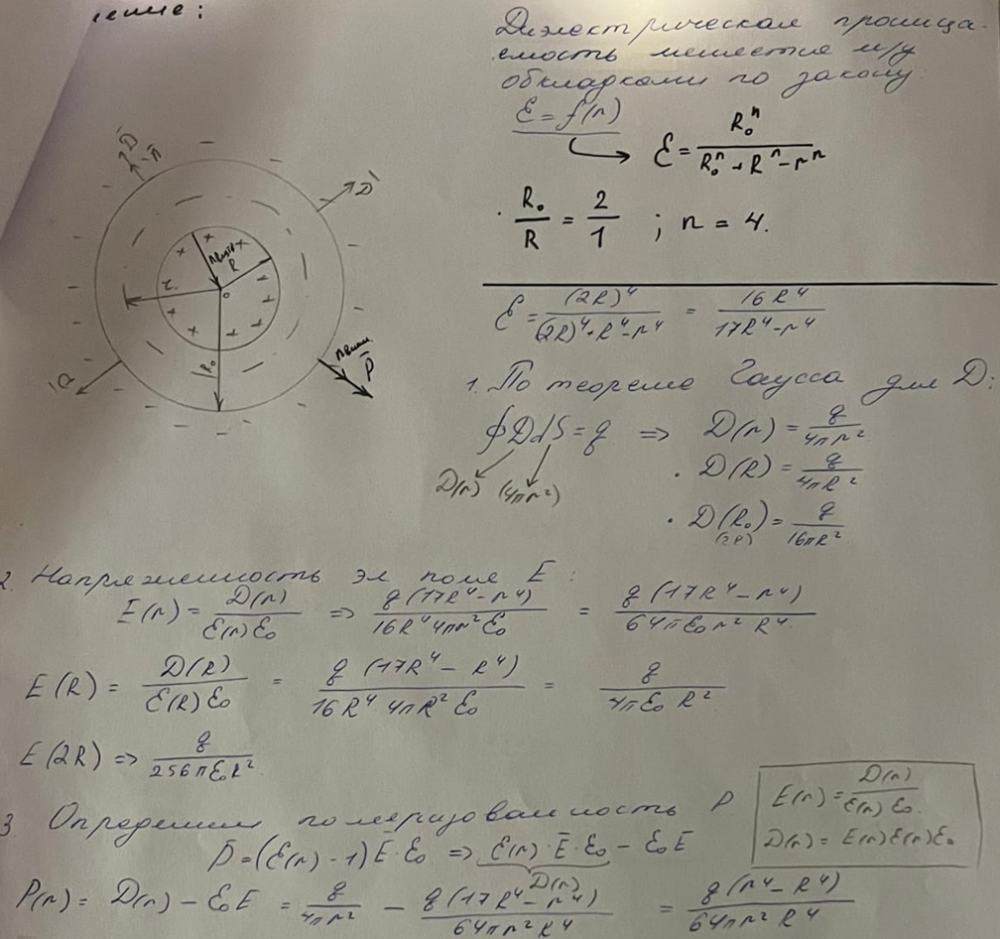 ление:
Диэлектрическая проница-
емость меняется м/у
обкладками по закону:
ε = f(r)
ε = R₀ⁿ / (R₀ⁿ + Rⁿ - rⁿ)
R₀/R = 2/1 ; n = 4.
ε = (2R)⁴ / ((2R)⁴ + R⁴ - r⁴) = 16R⁴ / (17R⁴ - r⁴)
1. По теореме Гаусса для D:
∮DdS = q => D(r) = q / 4πr²
D(r) (4πr²)
· D(R) = q / 4πR²
· D(R₀) = q / 16πR²
(2R)
2. Напряженность эл поле E :
E(r) = D(r) / ε(r)ε₀ => q(17R⁴ - r⁴) / 16R⁴ 4πr² ε₀ = q(17R⁴ - r⁴) / 64πε₀ r² R⁴
E(R) = D(R) / ε(R)ε₀ = q(17R⁴ - R⁴) / 16R⁴ 4πR² ε₀ = q / 4πε₀ R²
E(2R) => q / 256πε₀R²
3. Определим поляризованность P
E(r) = D(r) / ε(r) ε₀.
D(r) = E(r)ε(r)ε₀
P̄ = (ε(r) - 1) Ē·ε₀ => ε(r)·Ē·ε₀ - ε₀E
D(r)
P(r) = D(r) - ε₀E = q / 4πr² - q(17R⁴ - r⁴) / 64πr²R⁴ = q(r⁴ - R⁴) / 64πr²R⁴
D̄
n̄
D̄
R
r
0
R₀
D̄
P̄